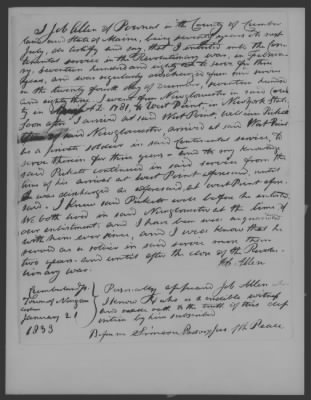 I Job Allen of Pownal in the County of Cumber
land and State of Maine, being seventy years old next
July, do testify and say, that I entered into the Con
tinental service in the Revolutionary war, in February
seventeen hundred and eighty one to serve for three
years, and was regularly discharged from said service
on the twenty fourth day of December, seventeen hundred
and eighty three. I went from New Gloucester in said County
in April AD 1781, to West Point, in New York State,
soon after I arrived at said West Point, William Pickett
of said New Gloucester, arrived at said West Point
as a private soldier in said Continental service, to
serve therein for three years - And to my knowledge
said Pickett continued in said service from the
time of his arrival at West Point aforesaid, until
I was discharged as aforesaid, at West Point afore
said - I knew said Pickett well before he enlisted,
We both lived in said New Gloucester at the time of
our enlistment, and I have been well acquainted
with him ever since, and I well know that he
served as a soldier in said service more than
two years and until after the close of the Revolu
tionary war.
Job Allen
Cumberland Ss.
Town of
January 21
1833
Personally appeared Job Allen
I know & who is a credible witness
and made oath to the truth of this depo
sition by him subscribed
Before me Simeon Jus of the Peace